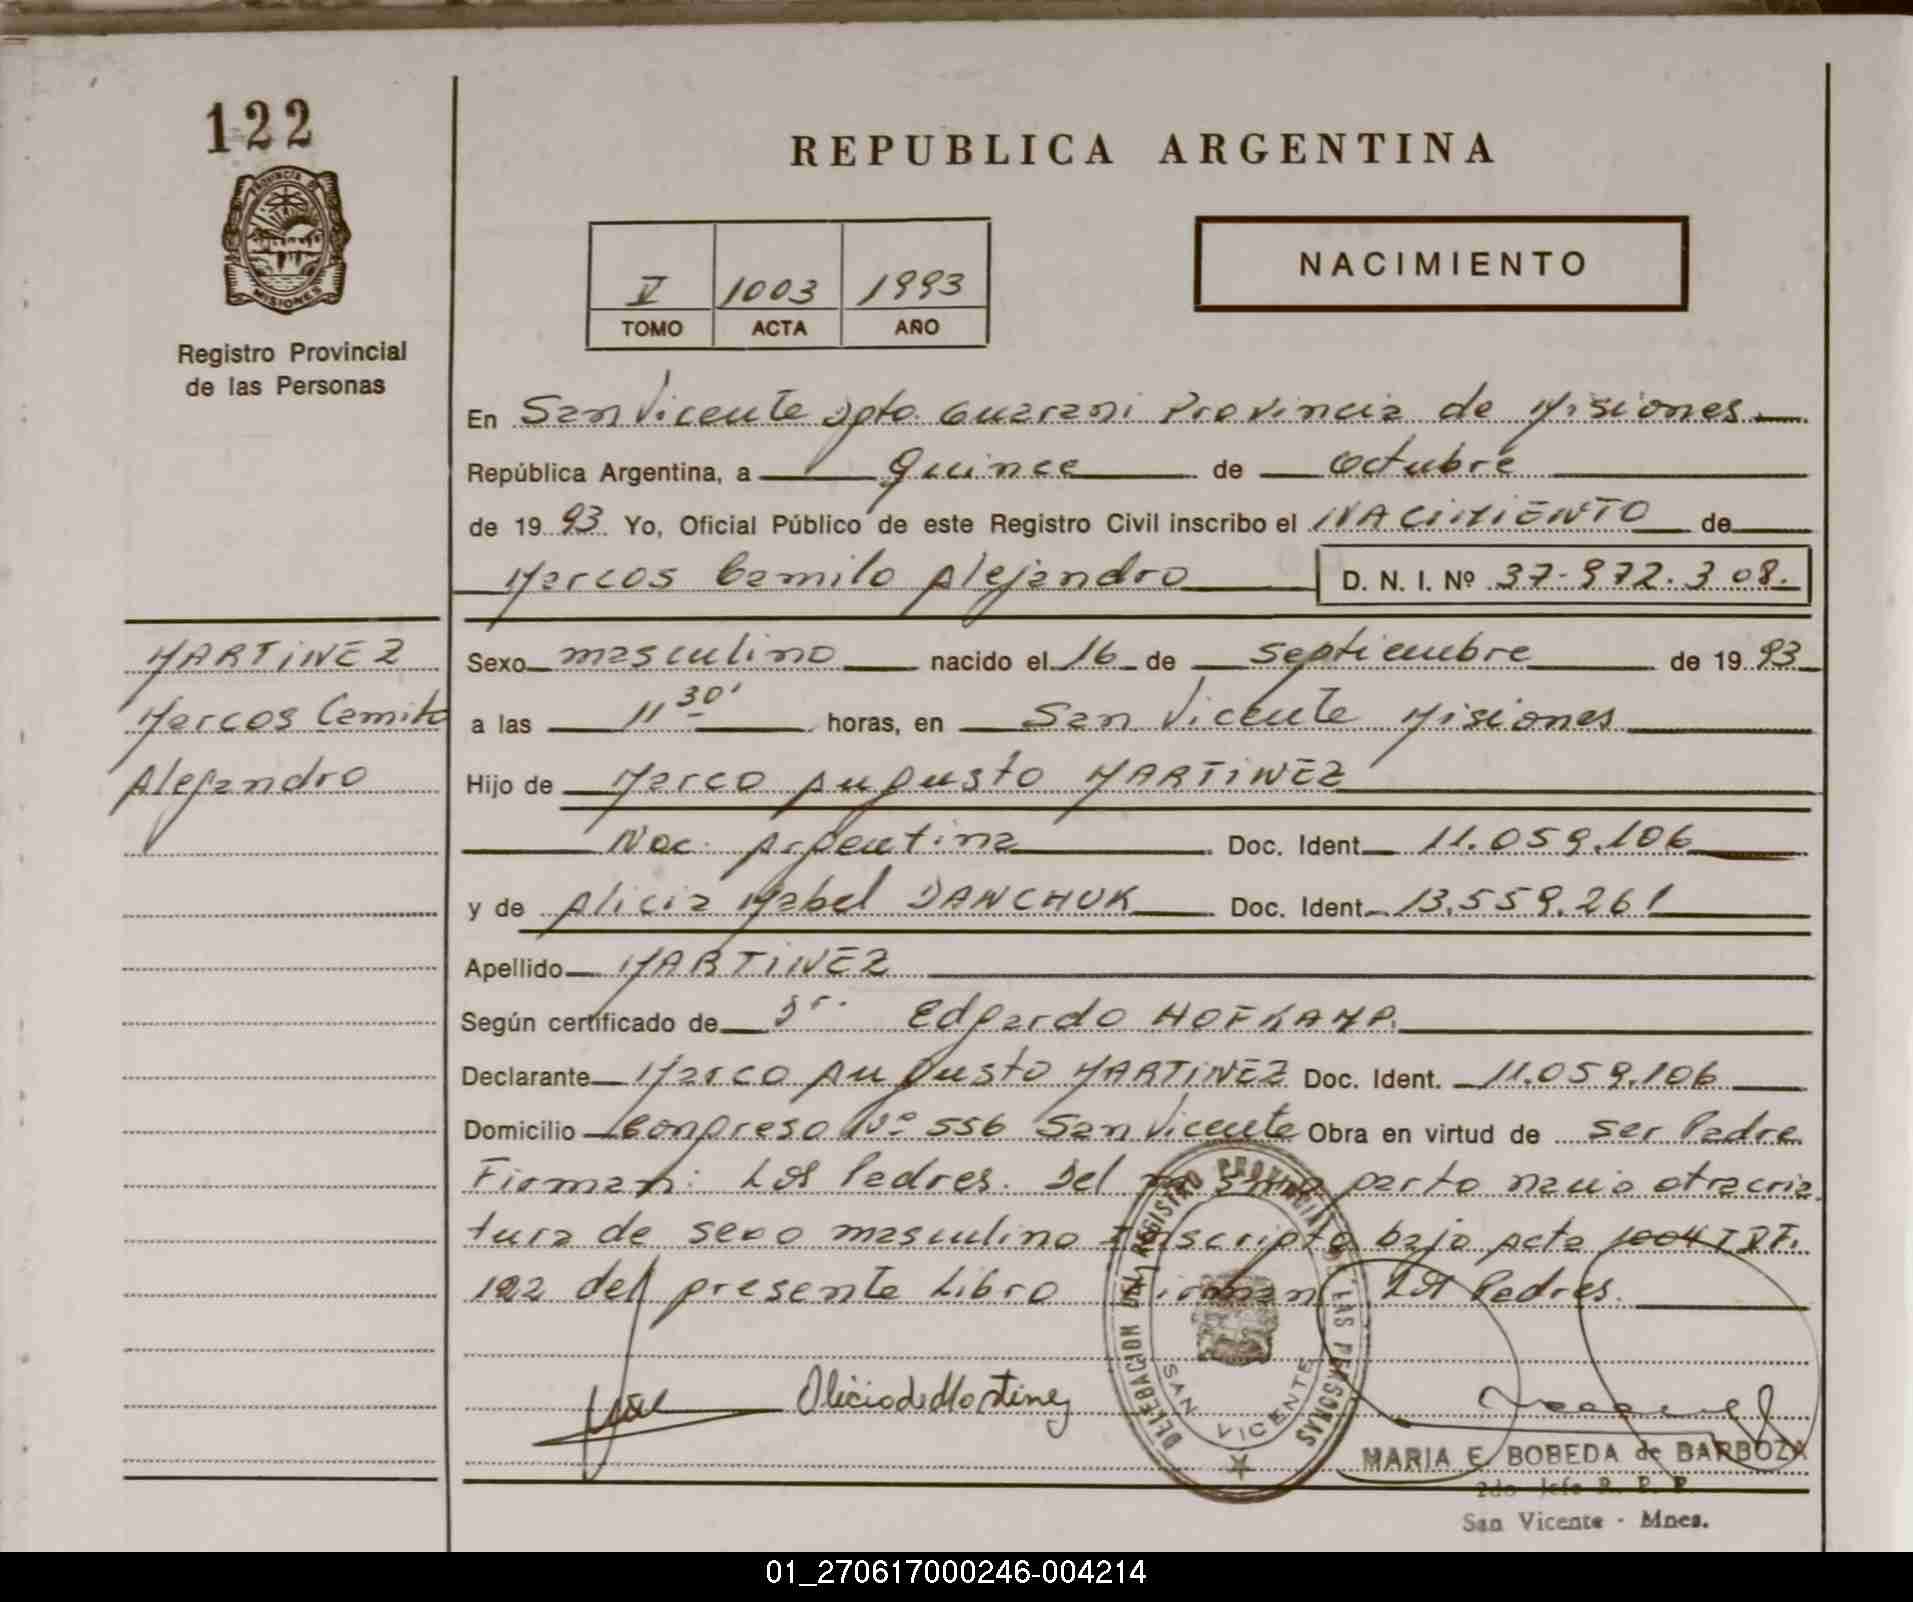 122
REPUBLICA ARGENTINA
PROVINCIA DE
MISIONES
Registro Provincial
de las Personas
V 1003 1993
TOMO ACTA AÑO
NACIMIENTO
En San Vicente Dpto. Guarani Provincia de Misiones
República Argentina, a Quince de Octubre
de 19 93 Yo, Oficial Público de este Registro Civil inscribo el NACIMIENTO de
Marcos Camilo Alejandro D. N. I. Nº 37.972.308.
MARTINEZ
Marcos Camilo
Alejandro
Sexo masculino nacido el 16 de septiembre de 19 93
a las 11 30' horas, en San Vicente Misiones
Hijo de Marco Augusto MARTINEZ
Nac. Argentina Doc. Ident. 11.059.106
y de Alicia Mabel DANCHUK Doc. Ident. 13.559.261
Apellido MARTINEZ
Según certificado de Dr. Edgardo HOFKAMP.
Declarante Marco Augusto MARTINEZ Doc. Ident. 11.059.106
Domicilio Congreso Nº 556 San Vicente Obra en virtud de ser Padre
Firman: Los Padres. Del mismo parto nacio otra cria
tura de sexo masculino Inscripto bajo acta 1004 T
122 del presente Libro Firman Los Padres.
Alicia de Martinez
DELEGACION DEL REGISTRO PROVINCIAL DE LAS PERSONAS
SAN VICENTE
MARIA E. BOBEDA de BARBOZA
2do Jefe R. P. P.
San Vicente - Mnes.
01_270617000246-004214